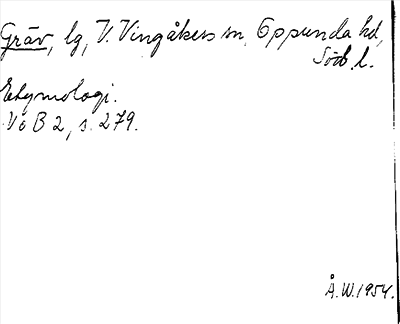 Gräv, lg, V. Vingåkers sn, Oppunda hd,
Söd. l.
Etymologi.
Vö B 2, s. 279.
Å.W. 1954.